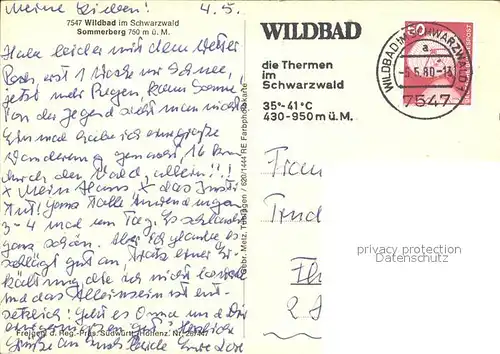 Meine Lieben! 4.5.
7547 Wildbad im Schwarzwald
Sommerberg 750 m ü. M.
Habe leider mit dem Wetter
Pech, erst 1 Woche nur Schnee,
jetzt nur Regen kaum Sonne!
Von der Gegend sieht man nichts
Einmal habe ich eine große
Wanderung gemacht, 16 km
durch den Wald, allein!!!
x Mein Haus x das Insti-
tut! Ganz tolle Anwendungen
3-4 mal am Tag. Es schlaucht
ganz schön. Aber ich glaube es
schlägt gut an, trotz einer Er-
kältung, die ich nicht
und das Alleinsein ist ent-
setzlich! Geht es Oma und Dir
gut? Herzliche
Grüße an Euch beide Eure
Gebr. Metz, Tübingen / 620/1444 RE Farbphotokarte
Freigeg. d. Reg.-Präs. Südwürtt.-Hohenz. Nr.
WILDBAD
die Thermen
im
Schwarzwald
35°-41°C
430-950 m ü. M.
WILDBAD IM SCHWARZWALD
a
-5.5.80-18
7547
60
DEUTSCHE BUNDESPOST
Frau
Trud
privacy protection
Datenschutz